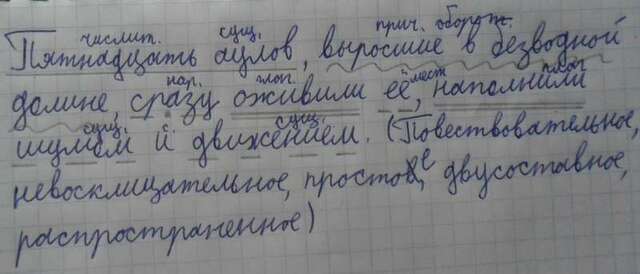 числит. сущ. прич. оборот.
Пятнадцать аулов, выросшие в безводной
нар. глаг. мест. глаг.
долине, сразу оживили её, наполнили
сущ. сущ.
шумом и движением. (Повествовательное,
невосклицательное, простое, двусоставное,
распространенное)